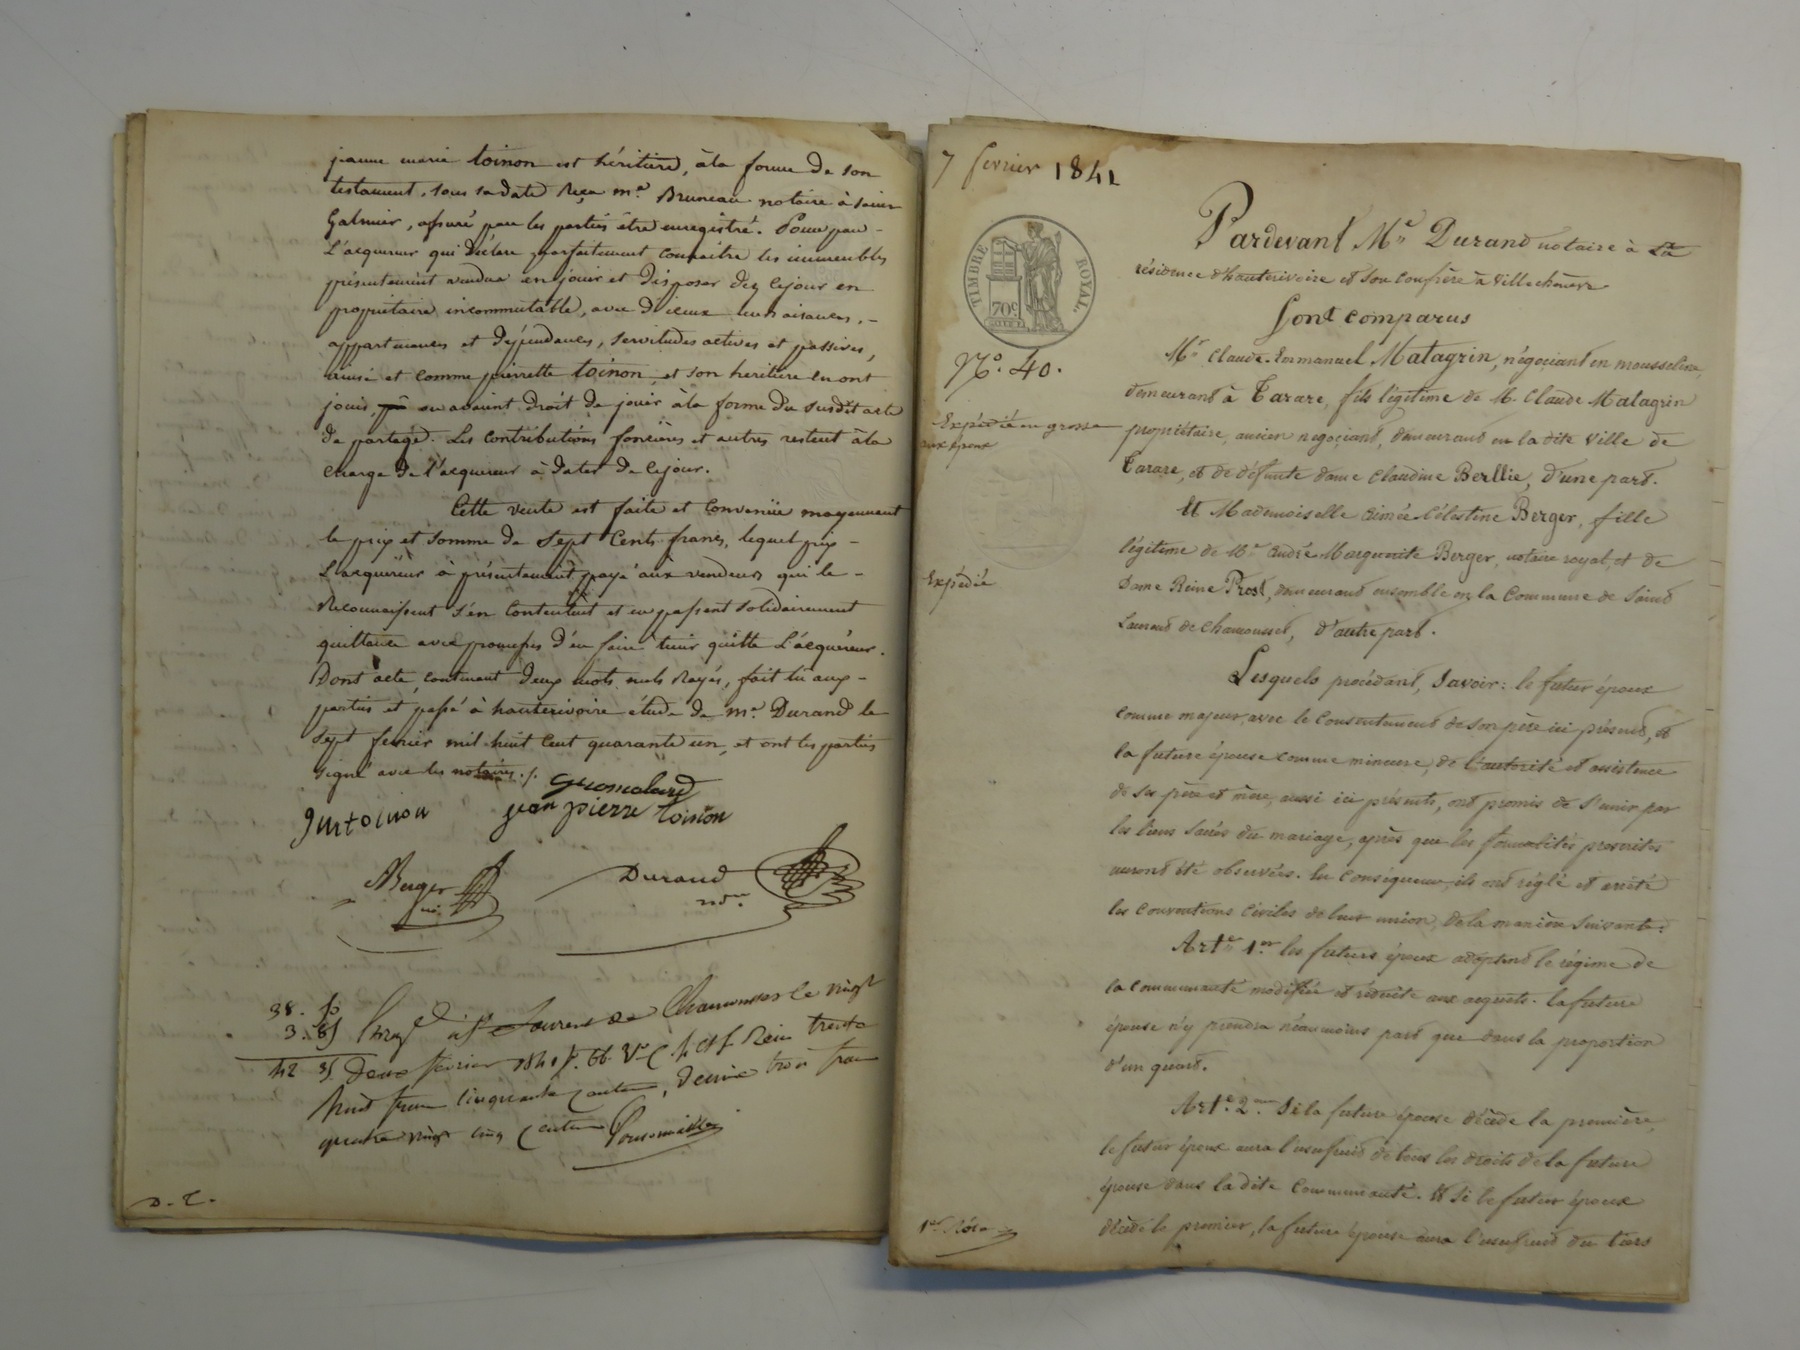 jeanne marie toinon est héritière, à la forme de son
testament, sous sa date Reçu me. Bruneau notaire à saint
Galmier, assuré par les parties être enregistré. Pour par -
L'acquereur qui Déclare parfaitement connaitre les immeubles
présentement vendus en jouir et disposer dez cejour en
propriétaire incommutable, avec D'iceux leurs aisances, -
appartenances et dépendances, servitudes actives et passives,
ainsi et comme pierrette toinon et son heritiere en ont
joui, ou avaient droit de jouir à la forme du susdit acte
de partage. Les contributions foncières et autres restent à la
charge de l'acquereur à dater de cejour.
Cette vente est faite et convenüe moyennant
le prix et somme de sept cents francs, lequel prix -
L'acquéreur à présentement payé aux vendeurs qui le -
Reconnaissent s'en contentent et en passent solidairement
quittance avec promesses d'en faire tenir quitte L'acquéreur.
Dont acte, contenant deux mots nuls Rayés, fait lu aux -
parties et passé à hauterivoire étude de me. Durand le
sept fevrier mil huit cent quarante un, et ont les parties
signé avec les notaires ./.
jm toinon
jean pierre toinon
Berger
no.
Durand
nore.
38. 50
3. 85
42 35
Enregé à St Laurent de Chamousset le vingt
Deux fevrier 1841 fo. 66 Vo C. Reçu trente
huit francs cinquante centimes, Decime trois francs
quatre vingt cinq centimes
D. T.
7 fevrier 1841
TIMBRE ROYAL
70c
No. 40.
Expédié en grosse
aux époux
Expédié
1er Rôle
Pardevant Me Durand notaire à la
résidence d'hauterivoire et son confrère à Villechenève
Sont comparus
Mr Claude-Emmanuel Matagrin, négociant en mousseline,
demeurant à Tarare, fils légitime de M. Claude Matagrin
propriétaire, ancien negociant, demeurant en la dite Ville de
Tarare, et de défunte dame Claudine Berllie, d'une part.
Et Mademoiselle Aimée Célestine Berger, fille
légitime de Me André Marguerite Berger, notaire royal, et de
Dame Reine Prost, demeurant ensemble en la Commune de Saint
Laurent de Chamousset, d'autre part.
Lesquels procédant, Savoir: le futur époux
comme majeur, avec le consentement de son père ici présent, et
la future épouse comme mineure, de l'autorité et assistence
de ses père et mère, aussi ici présents, ont promis de s'unir par
les liens sacrés du mariage, après que les formalités prescrites
auront été observées. En conséquence, ils ont réglé et arrêté
les conventions civiles de leur union, de la manière suivante:
Arte. 1er les futurs époux adoptent le régime de
la communauté modifiée et réduite aux acquets. la future
épouse n'y prendra néanmoins part que dans la proportion
d'un quart.
Arte. 2me Si la future épouse décède la première,
le futur époux aura l'usufruit de tous les droits de la future
épouse dans la dite communauté. Et si le futur époux
décède le premier, la future épouse aura l'usufruit du tiers